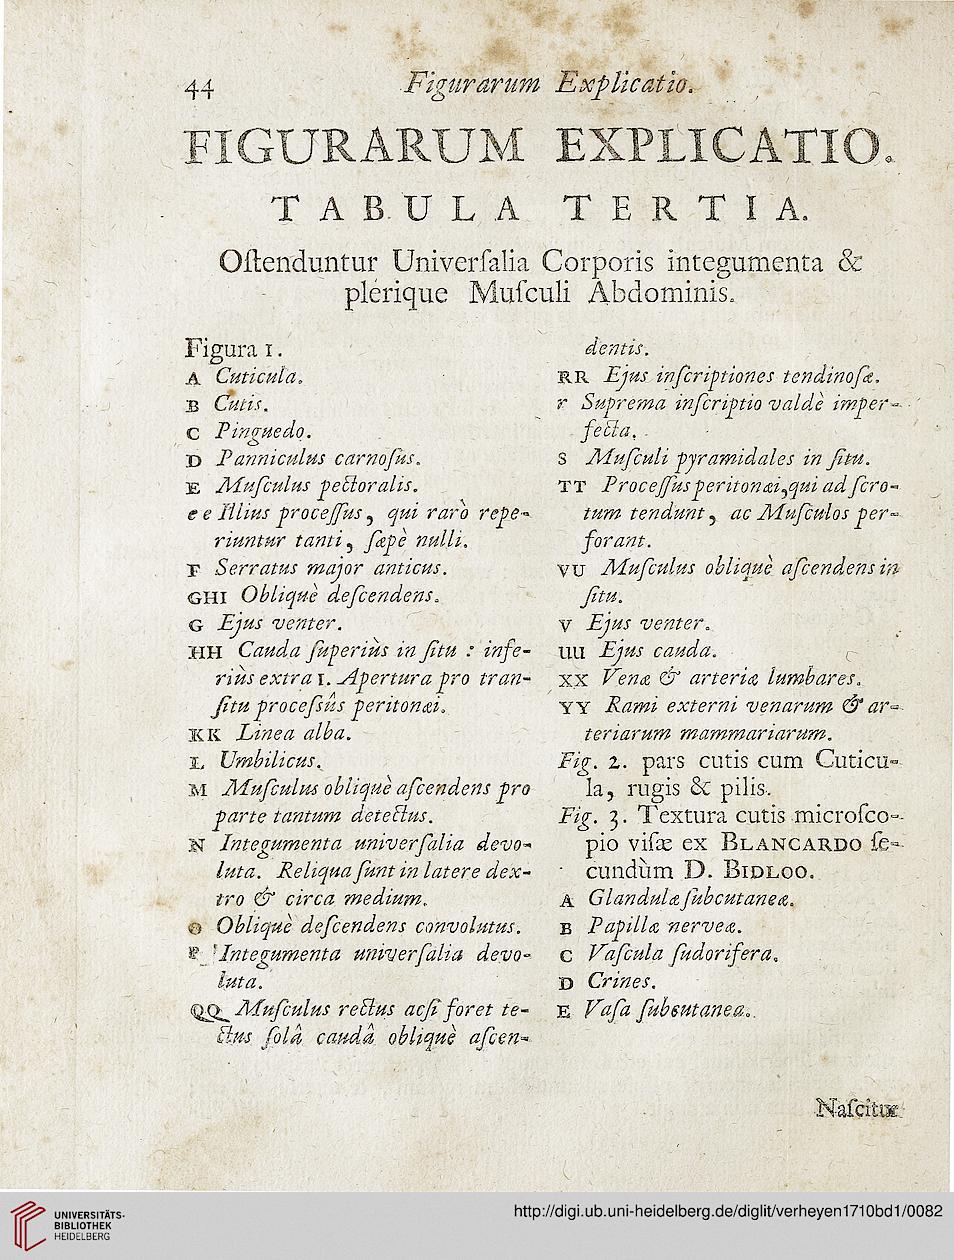 44 Figurarum Explicatio.
FIGURARUM EXPLICATIO.
TABULA TERTIA.
Oſtenduntur Univerſalia Corporis integumenta &
plerique Muſculi Abdominis.
Figura 1.
A Cuticula.
B Cutis.
C Pinguedo.
D Panniculus carnoſus.
E Muſculus pectoralis.
e e Illius proceſſus, qui rarò repe-
riuntur tanti, ſæpè nulli.
F Serratus major anticus.
GHI Obliquè deſcendens.
G Ejus venter.
HH Cauda ſuperiùs in ſitu : infe-
riùs extra 1. Apertura pro tran-
ſitu proceſsûs peritonæi.
KK Linea alba.
L Umbilicus.
M Muſculus obliquè aſcendens pro
parte tantum detectus.
N Integumenta univerſalia devo-
luta. Reliqua ſunt in latere dex-
tro & circa medium.
O Obliquè deſcendens convolutus.
P Integumenta univerſalia devo-
luta.
QQ Muſculus rectus acſi foret te-
ctus ſolâ caudâ obliquè aſcen-
dentis.
RR Ejus inſcriptiones tendinoſæ.
r Suprema inſcriptio valdè imper-
fecta.
S Muſculi pyramidales in ſitu.
TT Proceſſus peritonæi, qui ad ſcro-
tum tendunt, ac Muſculos per-
forant.
VU Muſculus obliquè aſcendens in
ſitu.
V Ejus venter.
UU Ejus cauda.
XX Venæ & arteriæ lumbares.
YY Rami externi venarum & ar-
teriarum mammariarum.
Fig. 2. pars cutis cum Cuticu-
la, rugis & pilis.
Fig. 3. Textura cutis microſco-
pio viſæ ex BLANCARDO ſe-
cundùm D. BIDLOO.
A Glandulæ ſubcutaneæ.
B Papillæ nerveæ.
C Vaſcula ſudorifera.
D Crines.
E Vaſa ſubcutanea.
Naſcitur
UNIVERSITÄTS-
BIBLIOTHEK
HEIDELBERG
http://digi.ub.uni-heidelberg.de/diglit/verheyen1710bd1/0082